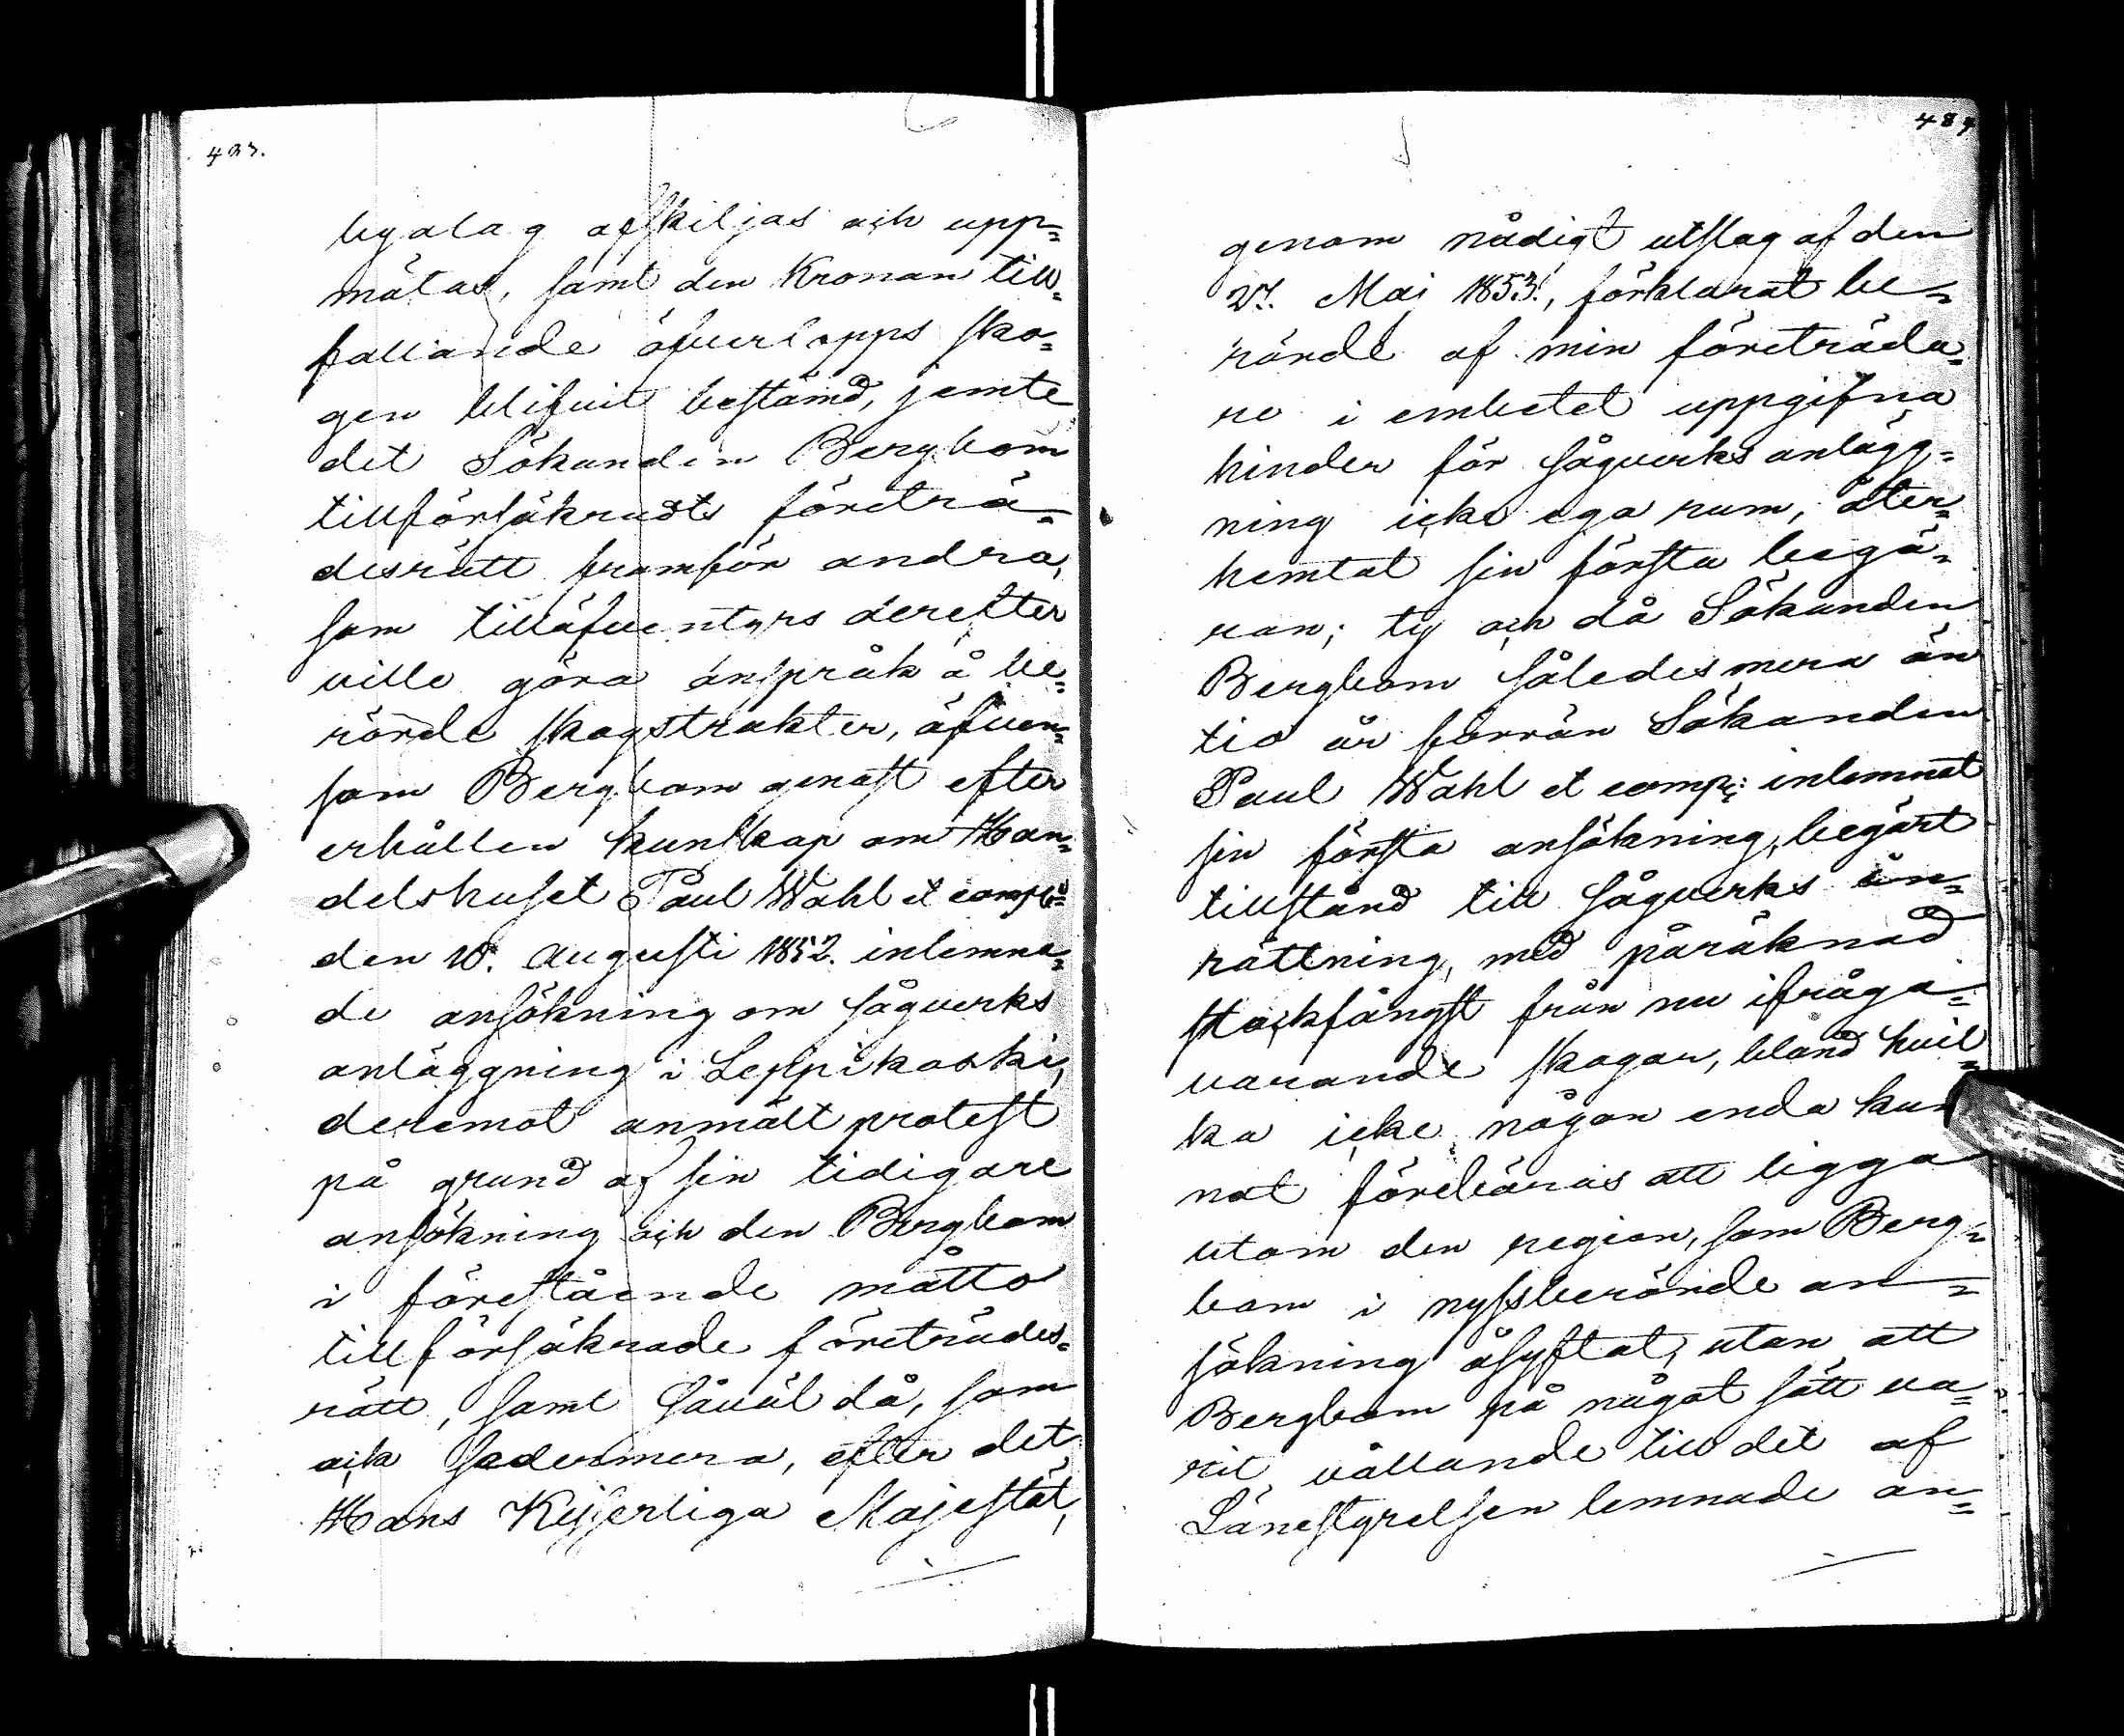 423.
byalag afskiljas och upp=
mätas, samt den Kronan till=
fallande öfverlopps sko=
gen blifvit bestämd, jemte
det Sökanden Bergbom
tillförsäkrads företrä=
desrätt framför andra,
som tilläfventyrs derefter
ville göra anspråk å be=
rörde skogstrakter, äfven=
som Bergbom genast efter
erhållen kunskap om Han=
delshuset Paul Wahl et comp:s
den 10. Augusti 1852. inlemna=
de ansökning om sågverks
anläggning i Leppikoski,
deremot anmält protest
på grund af sin tidigare
ansökning och den Bergbom
i förestående måtto
tillförsäkrade företrädes=
rätt, samt såväl då, som
ock sedermera, efter det
Hans Kejserliga Majestät,
484
genom nådigt utslag af den
27. Maj 1853., förklarat be=
rörde af min företräda=
re i embetet uppgifna
hinder för sågverks anlägg=
ning icke ega rum, åter=
hemtat sin första begä=
ran; ty och då Sökanden
Bergbom således mera än
tio år förrän Sökanden
Paul Wahl et comp: inlemnat
sin första ansökning, begärt
tillstånd till sågverks in=
rättning, med påräknad
stockfångst från nu ifråga=
varande skogar, bland hvil=
ka icke någon enda kun
nat förebäras att ligga
utom den region, som Berg=
bom i nyssberörde an=
sökning åsyftat, utan att
Bergbom på något sätt va=
rit vållande till det af
Länestyrelsen lemnade an=